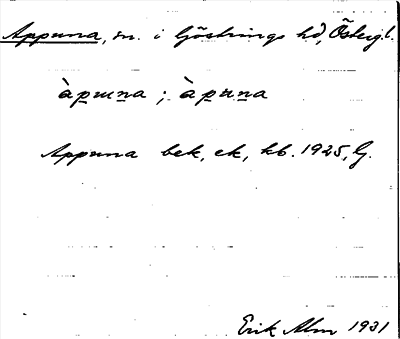 Appuna, sn. i Göstrings hd, Östergl.
àpuna ; àpuna
Appuna bek, ek, kb. 1925, G.
Erik Alm 1931